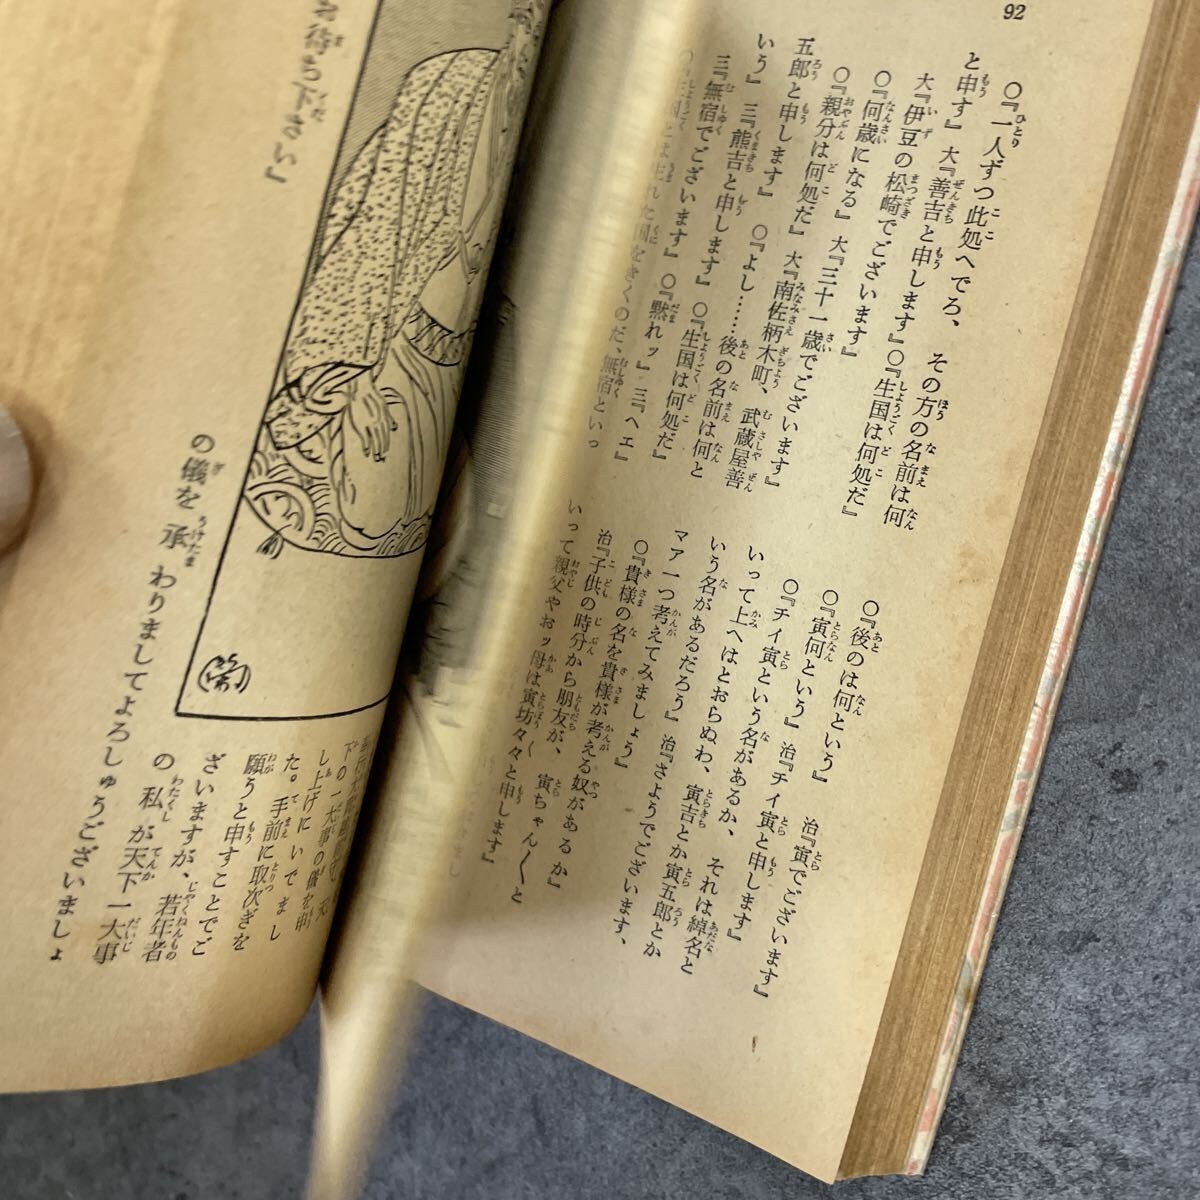 92
○『一人ずつ此処へでろ、その方の名前は何
と申す』大『善吉と申します』○『生国は何処だ』
大『伊豆の松崎でございます』
○『何歳になる』大『三十一歳でございます』
○『親分は何処だ』大『南佐柄木町、武蔵屋善
五郎と申します』○『よし……後の名前は何と
いう』三『熊吉と申します』○『生国は何処だ』
三『無宿でございます』○『黙れッ』三『ヘエ』
○『生国とは生れた国をきくのだ、無宿といっ
○『後のは何という』治『寅でございます』
○『寅何という』治『チイ寅と申します』
○『チイ寅という名があるか、それは綽名と
いって上へはとおらぬわ、寅吉とか寅五郎とか
いう名があるだろう』治『さようでございます、
マア一つ考えてみましょう』
○『貴様の名を貴様が考える奴があるか』
治『子供の時分から朋友が、寅ちゃん〳〵と
いって親父やおッ母は寅坊々々と申します』
待ち下さい』
の儀を承わりましてよろしゅうございましょ
下の一大事の儀を申
し上げにいでまし
た。手前に取次ぎを
願うと申すことでご
ざいますが、若年者
の私が天下一大事